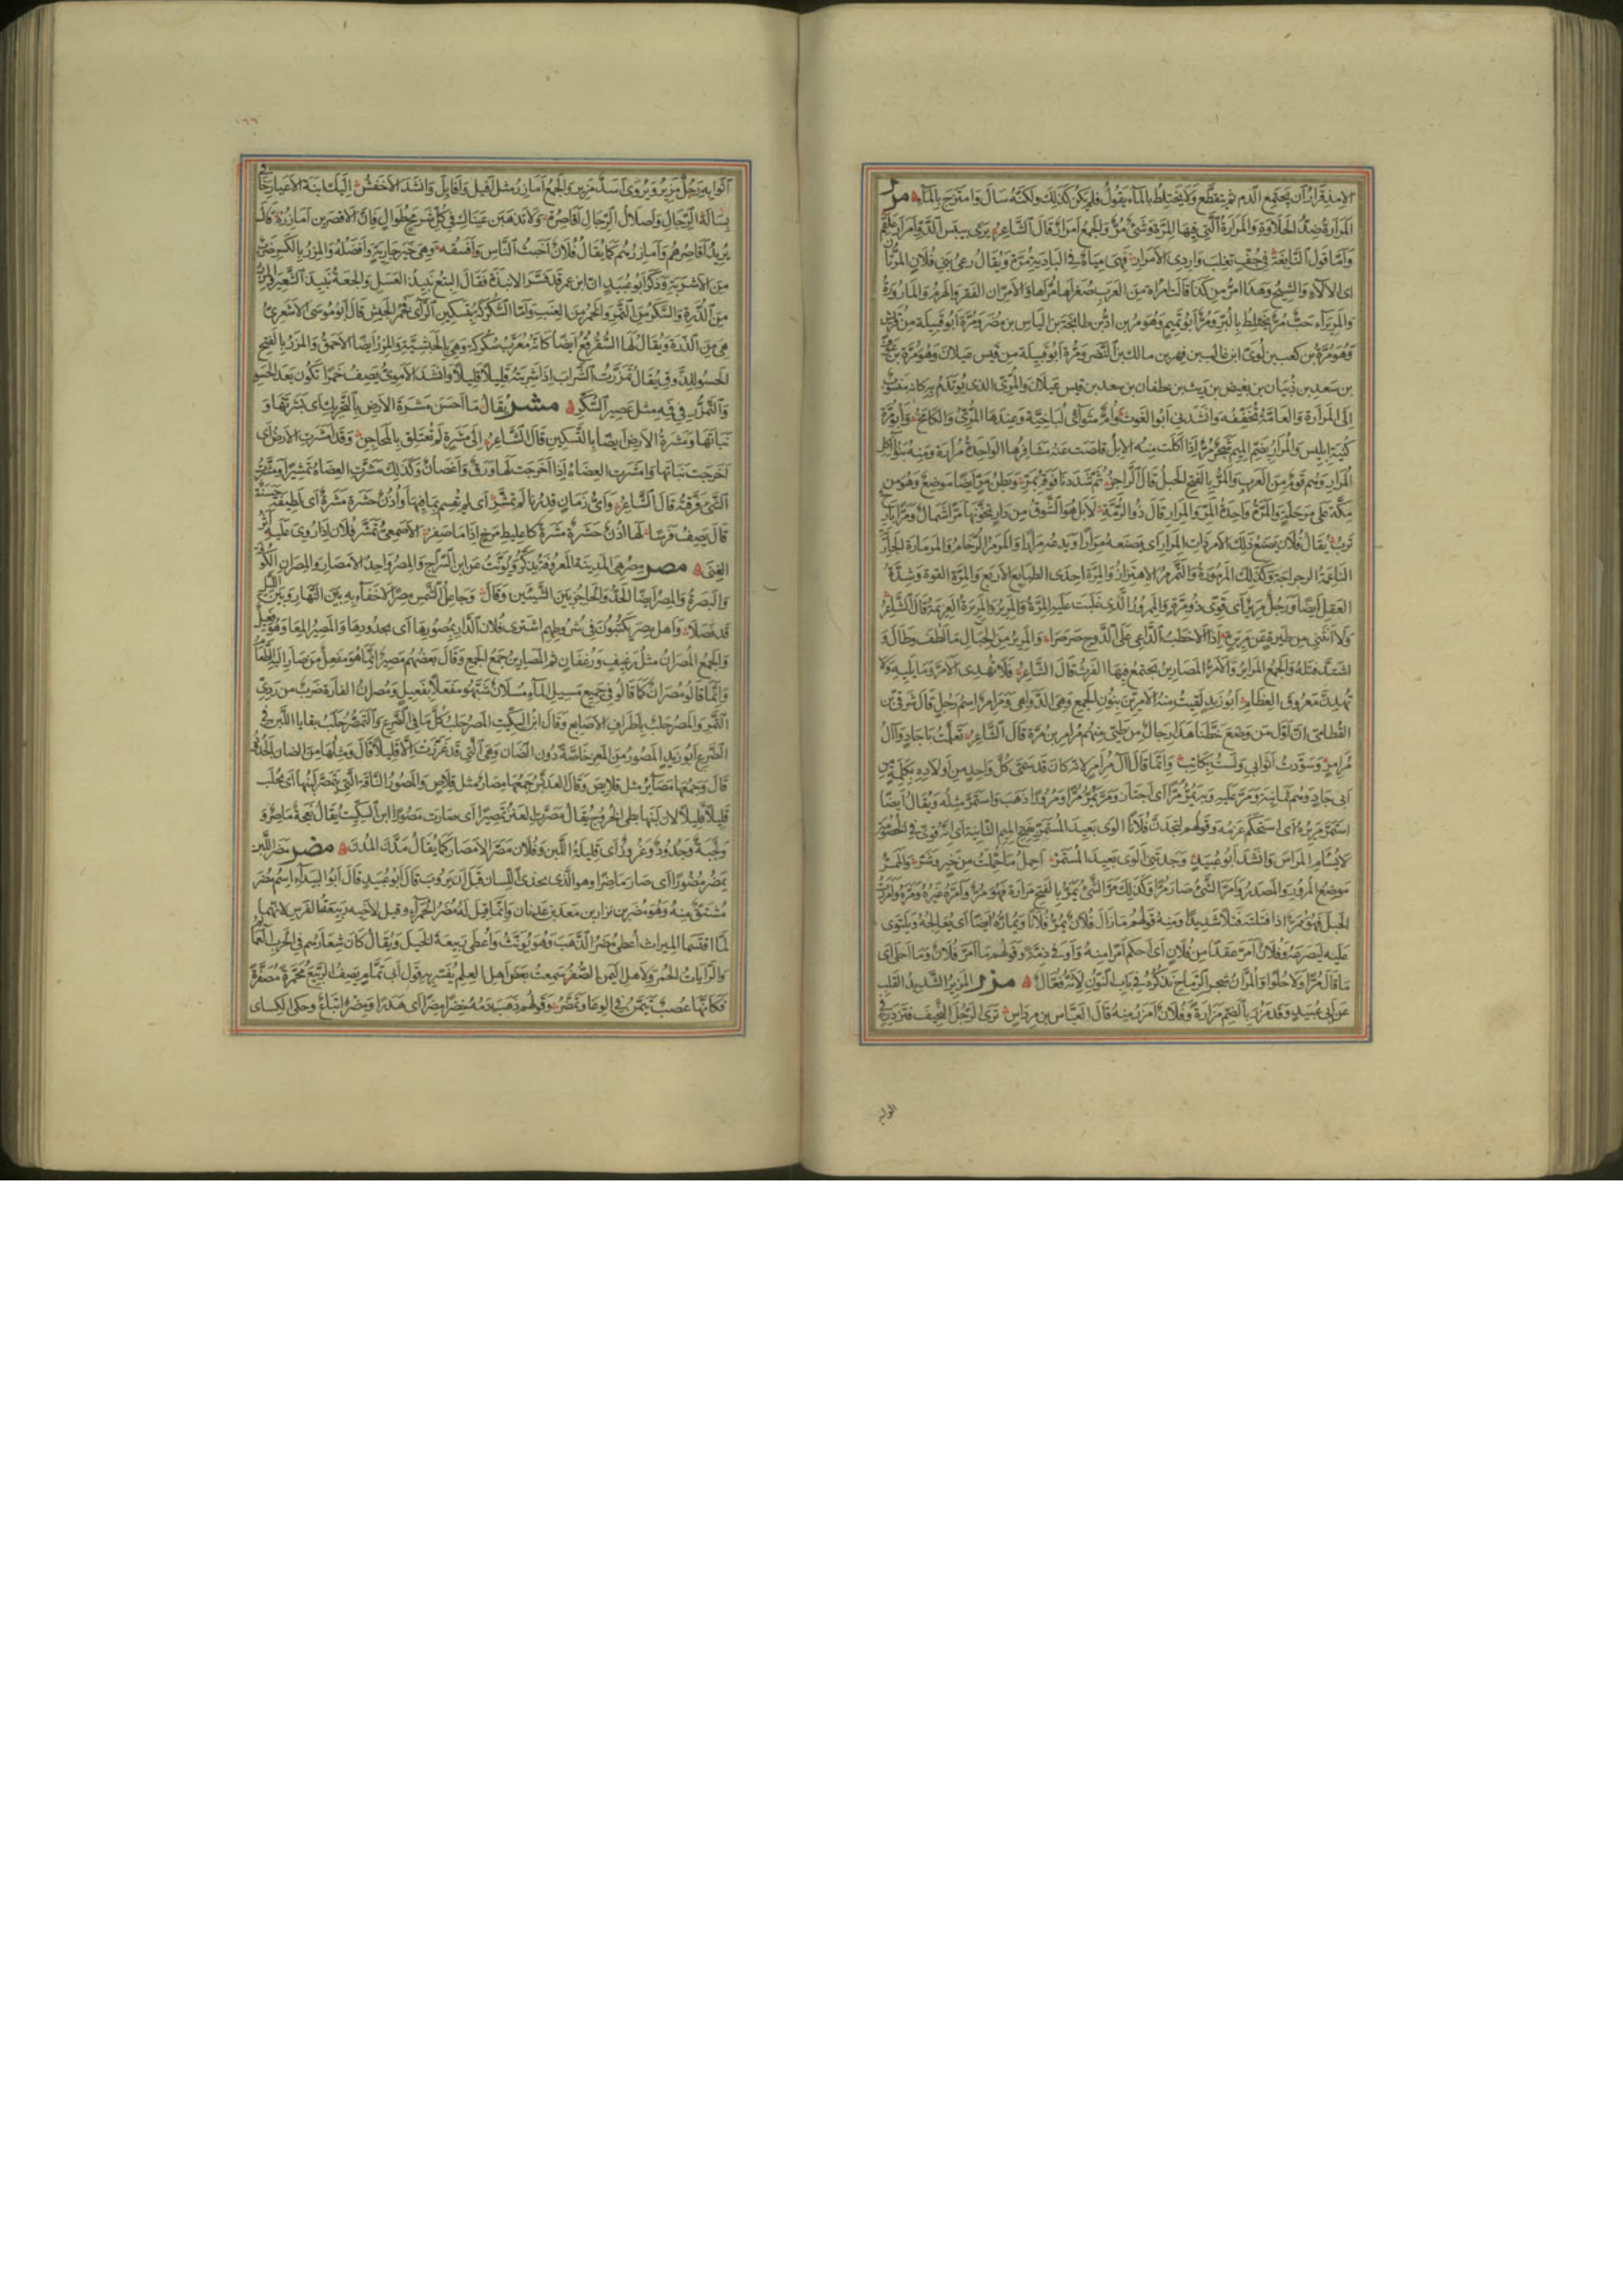 الامذقرار ان يجتمع الدم ثم يتقطع ولا يختلط بالماء يقول فلم يكن كذلك ولكنه سال وامتزج بالماء مرر
المرارة ضد الحلاوة والمرارة التي فيها المرة وشئ مر والجمع امرار قال الشاعر
واما قول النابغة في جف تغلب واردى الامرار فهى مياه في البادية مرة ويقال رعى بنى فلان المرتان
اى الالاء والشيح وهذا امر من كذا قالت امراة من العرب صغراها مراها والامران الفقر والهرم والمارورة
والمريراء حب مر يختلط بالبر ومر ابو تميم وهو مر بن اد بن طابخة بن الياس بن مضر ومرة ابو قبيلة من قريش
وهو مرة بن كعب بن لوى ابن غالب بن فهر بن مالك بن النضر ومرة ابو قبيلة من قيس عيلان وهو مرة بن عوف
بن سعد بن ذبيان بن بغيض بن ريث بن غطفان بن سعد بن قيس عيلان والمرى الذى يوتدم به كانه منسوب
الى المرارة والعامة تخففه وانشدنى ابو الغوث وام مثواى لباخية وعندها المرى والكامخ وابو مرة
كنية ابليس والمرار بضم الميم شجر مر اذا اكلت منه الابل قلصت عنه مشافرها الواحدة مرارة ومنه بنو اكل
المرار وهم قوم من العرب والمر بالفتح الحبل قال الراجز ثم شددنا فوقه بمر وبطن مر ايضا موضع وهو من
مكة على مرحلة والمرة واحدة المر والمرار قال ذو الرمة لابل هو الشوق من دار تخونها مرا شمال ومرا بارح
ترب يقال فلان يصنع ذلك الامر ذات المرار اى يصنعه مرارا ويدعه مرارا والمرمر الرخام والمرمارة الجارية
الناعمة الرجراجة وكذلك المرمورة والتمرمر الاهتزاز والمرة احدى الطبايع الاربع والمرة القوة وشدة
العقل ايضا ورجل مرير اى قوى ذو مرة والممرور الذى غلبت عليه المرة والمرير والمريرة العزيمة قال الشاعر
ولا انثنى من طيرة عن مريرة اذا الاخطب الداعى على الدوح صرصرا والمرير من الحبال ما لطف وطال و
اشتد فتله والجمع المراير والامر المصارين يجتمع فيها الفرث قال الشاعر فلا تهدى الامر وما يليه ولا
تهدن معروق العظام ابو زيد لقيت منه الامرين بنون الجمع وهى الدواهى ومرامر اسم رجل قال شرقى بن
القطامى ان اول من وضع خطنا هذا رجال من طيئ منهم مرامر بن مرة قال الشاعر تعلمت باجاد وال
مرامر وسودت اثوابى ولست بكاتب وانما قال ال مرامر لانه كان قد سمى كل واحد من اولاده بكلمة من
ابى جاد وهم ثمانية ومر عليه وبه يمر مرا اى اجتاز ومر يمر مرا ومرورا ذهب واستمر مثله ويقال ايضا
استمر مريره اى استحكم عزمه وقولهم لتجدن فلانا الوى بعيد المستمر بفتح الميم الثانية اى انه قوى في الخصومة
لا يسام المراس وانشد ابو عبيد وجدتنى الوى بعيد المستمر احمل ما حملت من خير وشر والممر
موضع المرور والمصدر وامر الشئ صار مرا وكذلك مر الشئ يمر بالفتح مرارة فهو مر وامره غيره ومرره وامررت
الحبل فهو ممر اذا فتلته فتلا شديدا ومنه قولهم ما زال فلان يمر فلانا ويماره ايضا اى يعالجه ويلتوى
عليه ليصرعه وفلان امر عقدا من فلان اى احكم امرا منه واوفى ذمة وقولهم ما امر فلان وما احلى اى
ما قال مرا ولا حلوا والمران شجر الرماح نذكره في باب النون لانه فعال مزر المزير الشديد القلب
عن ابى عبيد وقد مزر بالضم مزارة وفلان امزر منه قال العباس بن مرداس ترى الرجل النحيف فتزدريه وفى
اثوابه
اثوابه رجل مزير ويروى اسد مزير والجمع امازر مثل افيل وافايل وانشد الاخفش اليك ابنة الاعيار خافى
بسالة الرجال واصلال الرجال اقاصره ولا تذهبن عيناك فى كل شرمح طوال فان الاقصرين امازره قال
يريد اقاصرهم وامازرهم كما يقال فلان اخبث الناس وافسقه وهى خير جارية وافضله والمزر بالكسر ضرب
من الاشربة وذكر ابو عبيد ان ابن عمر قد فسر الانبذة فقال البتع نبيذ العسل والجعة نبيذ الشعير والمزر
من الذرة والسكر من التمر والخمر من العنب واما السكركة بتسكين الراى فخمر الحبش قال ابو موسى الاشعرى
هى من الذرة ويقال لها السقرقع ايضا كانه معرب سكركه وهى بالحبشية والمزر ايضا الاحمق والمزر بالفتح
الحسو للذوق يقال تمزرت الشراب اذا شربته قليلا قليلا وانشد الاموى يصف خمرا تكون بعد الحسو
والتمزر في فمه مثل عصير السكر مشر يقال ما احسن مشرة الارض بالتحريك اى بشرتها و
نباتها ومشرة الارض ايضا بالتسكين قال الشاعر الى مشرة لم تعتلق بالمحاجن وقد امشرت الارض اى
اخرجت نباتها وامشرت العضاه اذا اخرجت لها ورق واغصان وكذلك مشرت العضاه تمشيرا ومشرت
الشئ فرقته قال الشاعر واى زمان قدرنا لم تمشر اى لم يقسم ما فيها واذن حشرة مشرة اى لطيفة حسنة
قال يصف فرسا لها اذن حشرة مشرة كاعليط مرخ اذا ما صفر الاصمعى تمشر فلان اذا روى عليه اثر
الغنى مصر مصر هى المدينة المعروفة تذكر وتونث عن ابن السراج والمصر واحد الامصار والمصران الكوفة
والبصرة والمصر ايضا الحد والحاجز بين الشيئين وقال وجاعل الشمس مصرا لا خفاء به بين النهار وبين الليل
قد فصلا واهل مصر يكتبون فى شروطهم اشترى فلان الدار بمصورها اى بحدودها والمصير المعا وهو فعيل
والجمع المصران مثل رغيف ورغفان ثم المصارين جمع الجمع وقال بعضهم مصير انما هو مفعل من صار اليه الطعام
وانما قالو مصران كما قالو في جميع مسيل الماء مسلان شبهو مفعلا بفعيل ومصران الفارة ضرب من ردى
التمر والمصر حلب باطراف الاصابع وقال ابن السكيت المصر حلب كل ما في الضرع والتمصر حلب بقايا اللبن في
الضرع ابو زيد المصور من المعز خاصة دون الضان وهى التى قد غرزت الا قليلا قال ومثلها من الضان الجدود
قال وجمعها مصاير مثل قلايص وقال العدبس جمعها مصار مثل قلاص والمصور الناقة التى يتمصر لبنها اى يحلب
قليلا قليلا لان لبنها بطى الخروج يقال مصرت العنز تمصيرا اى صارت مصورا ابن السكيت يقال نعجة ماصر و
لجبة وجدود وغروز اى قليلة اللبن وفلان مصر الامصار كما يقال مدن المدن مضر مضر اللبن
يمضر مضورا اى صار ماضرا وهو الذى يحذى اللسان قبل ان يروب قال ابو عبيد قال ابو البيداء اسم مضر
مشتق منه وهو مضر بن نزار بن معد بن عدنان وانما قيل له مضر الحمراء وقيل لاخيه ربيعة الفرس لانهما
لما اقتسما الميراث اعطى مضر الذهب وهو يونث واعطى ربيعة الخيل ويقال كان شعارهم في الحرب العمايم
والرايات الحمر ولاهل اليمن الصفر سمعت بعض اهل العلم يفسر به قول ابى تمام يصف الربيع محمرة مصفرة
فكانها عصب تيمن في الوغا وتمضر وقولهم ذهب دمه خضرا مضرا اى هدرا ومضر اتباع وحكى الكساى